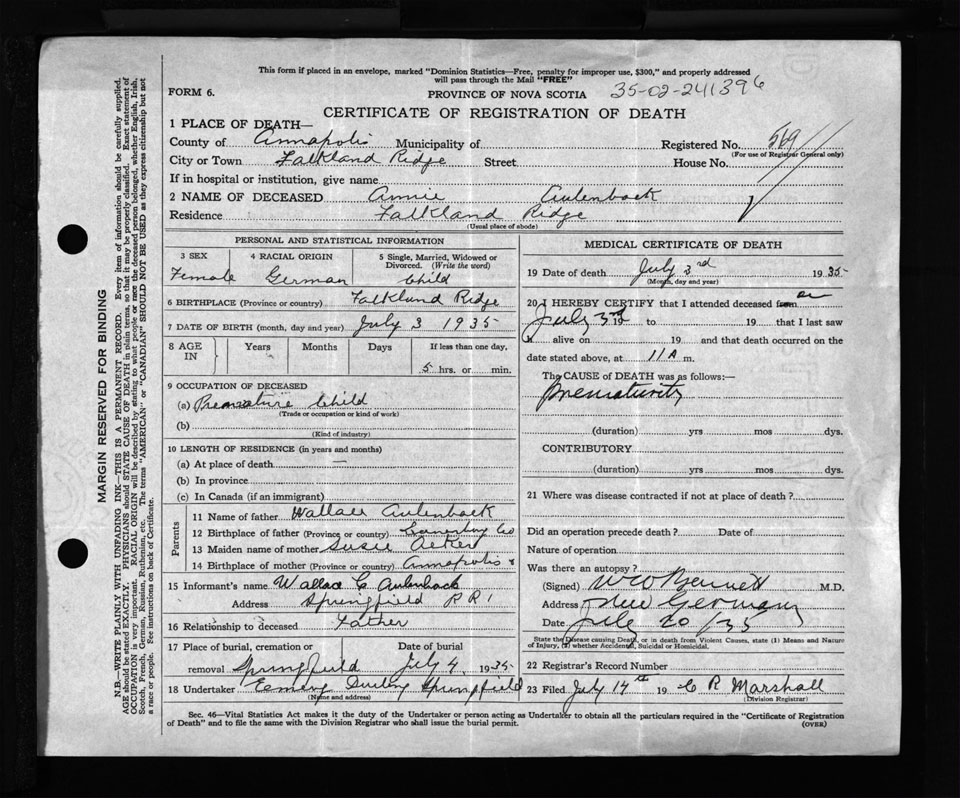 This form if placed in an envelope, marked "Dominion Statistics—Free, penalty for improper use, $300," and properly addressed
will pass through the Mail "FREE"
FORM 6.
PROVINCE OF NOVA SCOTIA
35-02-241396
CERTIFICATE OF REGISTRATION OF DEATH
1 PLACE OF DEATH—
County of Annapolis Municipality of Registered No. 569
(For use of Registrar General only)
City or Town Falkland Ridge Street House No.
If in hospital or institution, give name
2 NAME OF DECEASED Annie Aulenback
Residence Falkland Ridge
(Usual place of abode)
PERSONAL AND STATISTICAL INFORMATION
3 SEX 4 RACIAL ORIGIN 5 Single, Married, Widowed or
Divorced. (Write the word)
Female German Child
6 BIRTHPLACE (Province or country) Falkland Ridge
7 DATE OF BIRTH (month, day and year) July 3 1935
8 AGE IN Years Months Days If less than one day,
5 hrs. or min.
9 OCCUPATION OF DECEASED
(a) Premature Child
(Trade or occupation or kind of work)
(b)
(Kind of industry)
10 LENGTH OF RESIDENCE (in years and months)
(a) At place of death —
(b) In province
(c) In Canada (if an immigrant)
Parents
11 Name of father Wallace Aulenback
12 Birthplace of father (Province or country) Lunenburg Co
13 Maiden name of mother Susie
14 Birthplace of mother (Province or country) Annapolis
15 Informant's name Wallace C Aulenback
Address Springfield R R 1
16 Relationship to deceased Father
17 Place of burial, cremation or Date of burial
removal Springfield July 4 1935
18 Undertaker Springfield
(Name and address)
MEDICAL CERTIFICATE OF DEATH
19 Date of death July 3rd 1935
(Month, day and year)
20 I HEREBY CERTIFY that I attended deceased from
July 3rd 19 to 19 that I last saw
h alive on 19 and that death occurred on the
date stated above, at 11 A m.
The CAUSE of DEATH was as follows:—
Prematurity
(duration) yrs mos dys.
CONTRIBUTORY
(duration) yrs mos dys.
21 Where was disease contracted if not at place of death?
Did an operation precede death? Date of
Nature of operation
Was there an autopsy?
(Signed) W W Bennett M.D.
Address New Germany
Date 20/35
State the Disease causing Death, or in death from Violent Causes, state (1) Means and Nature
of Injury, (2) whether Accidental, Suicidal or Homicidal.
22 Registrar's Record Number
23 Filed July 14th 19 C R Marshall
(Division Registrar)
Sec. 46—Vital Statistics Act makes it the duty of the Undertaker or person acting as Undertaker to obtain all the particulars required in the "Certificate of Registration
of Death" and to file the same with the Division Registrar who shall issue the burial permit.
(OVER)
MARGIN RESERVED FOR BINDING
N.B.—WRITE PLAINLY WITH UNFADING INK—THIS IS A PERMANENT RECORD. Every item of information should be carefully supplied.
AGE should be stated EXACTLY. PHYSICIANS should STATE CAUSE OF DEATH in plain terms, so that it may be properly classified. Exact statement of
OCCUPATION is very important. RACIAL ORIGIN will be described by stating to what people or race the deceased person belonged, whether English, Irish,
Scotch, French, German, Russian, Ruthenian, etc. The terms "AMERICAN" or "CANADIAN" SHOULD NOT BE USED as they express citizenship but not
a race or people. See instructions on back of Certificate.